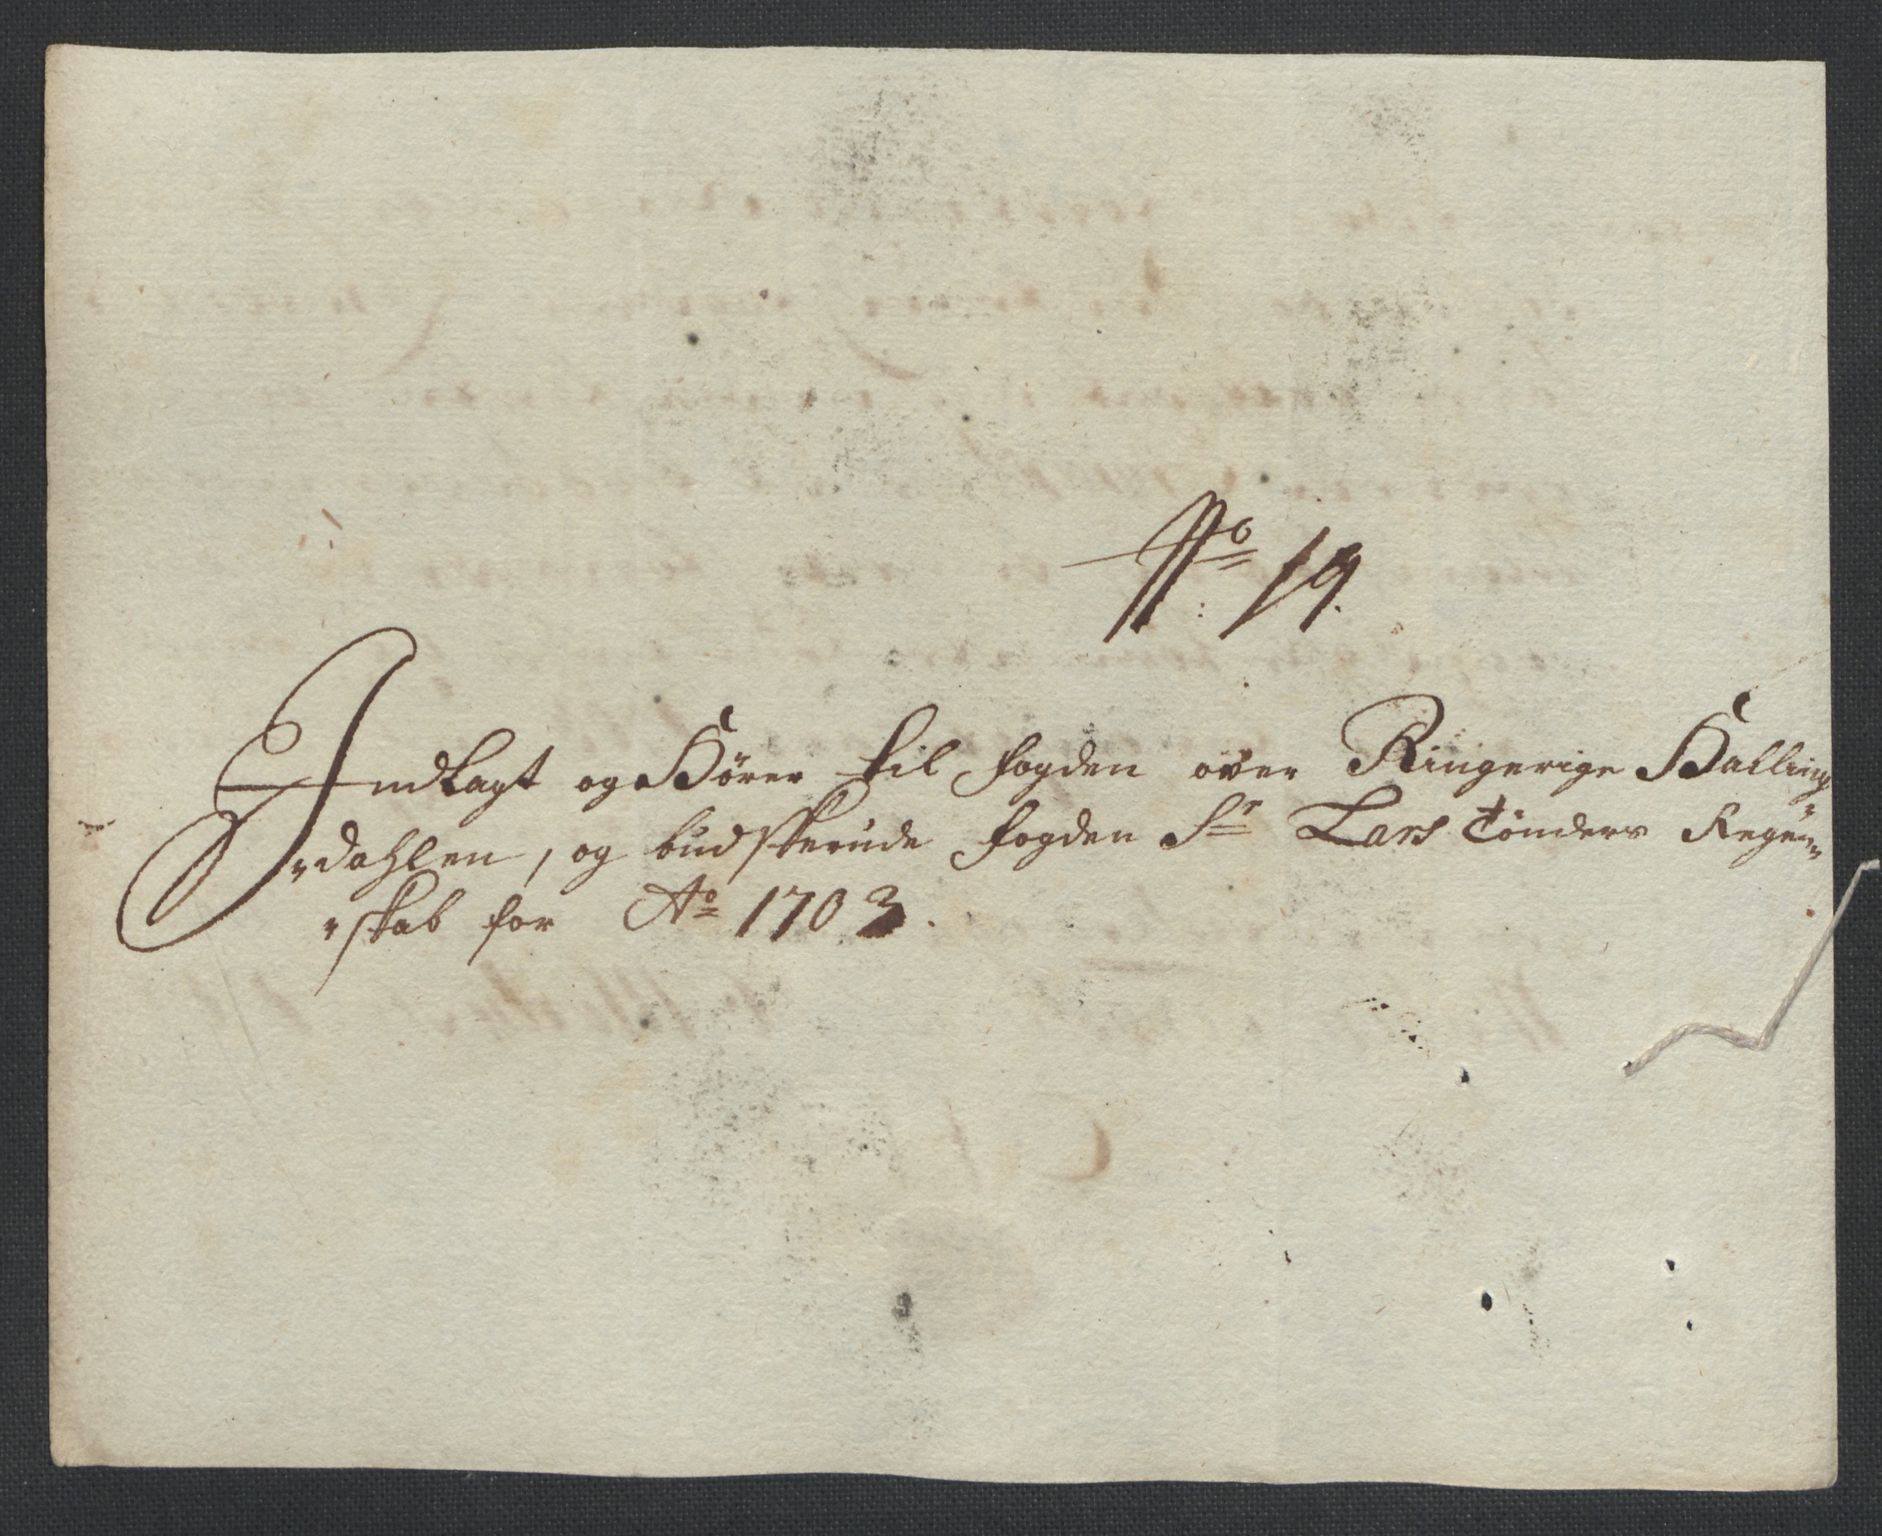 No 19.
Indlagt og Hörer til fogden over Ringerige Halling
"dahlen, og budskerude fogden Sr Lars Tönders Regen"
"skab for Ao 1703.